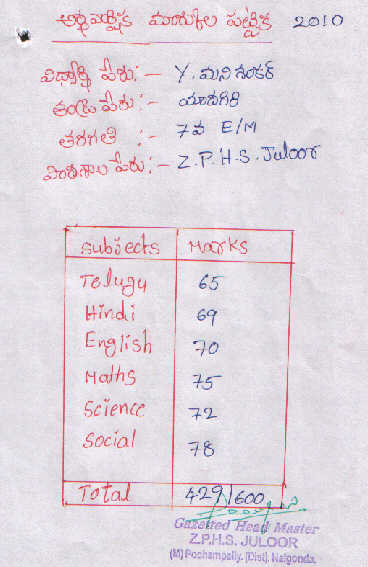 అర్థవార్షిక మార్కుల పట్టిక 2010
విద్యార్థి పేరు:- Y. మనిశంకర్
తండ్రి పేరు:- యాదగిరి
తరగతి :- 7వ E/M
పాఠశాల పేరు:- Z.P.H.S. Juloor
Subjects Marks
Telugu 65
Hindi 69
English 70
Maths 75
Science 72
Social 78
Total 429/600
Gazetted Head Master
Z.P.H.S. JULOOR
(M) Pochampally, (Dist). Nalgonda.